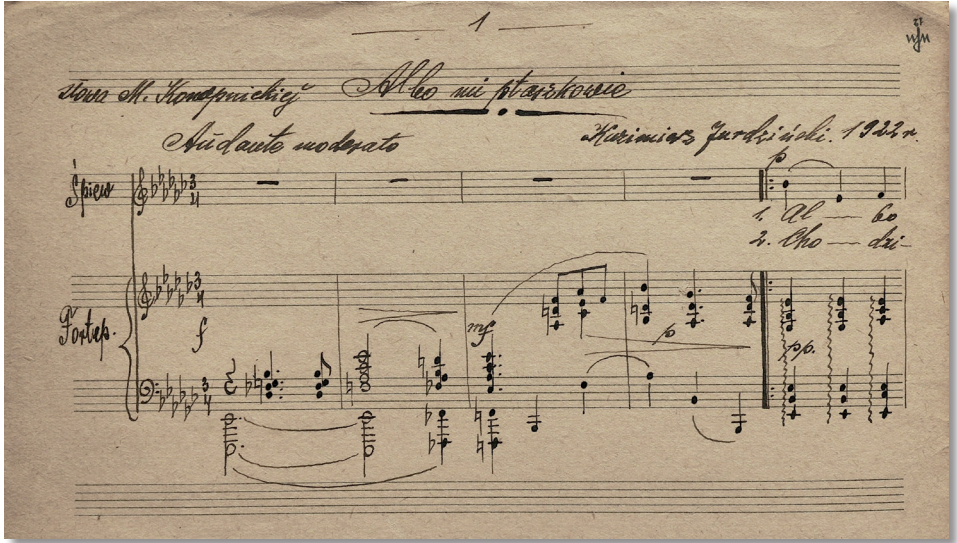 1
słowa M. Konopnickiej Albo mi ptaszkowie
Andante moderato Kazimierz Jurdziński. 1922 r.
Śpiew 3 4
p
1. Al — bo
2. Cho — dzi-
Fortep. 3 4
f mf p pp.
3 4